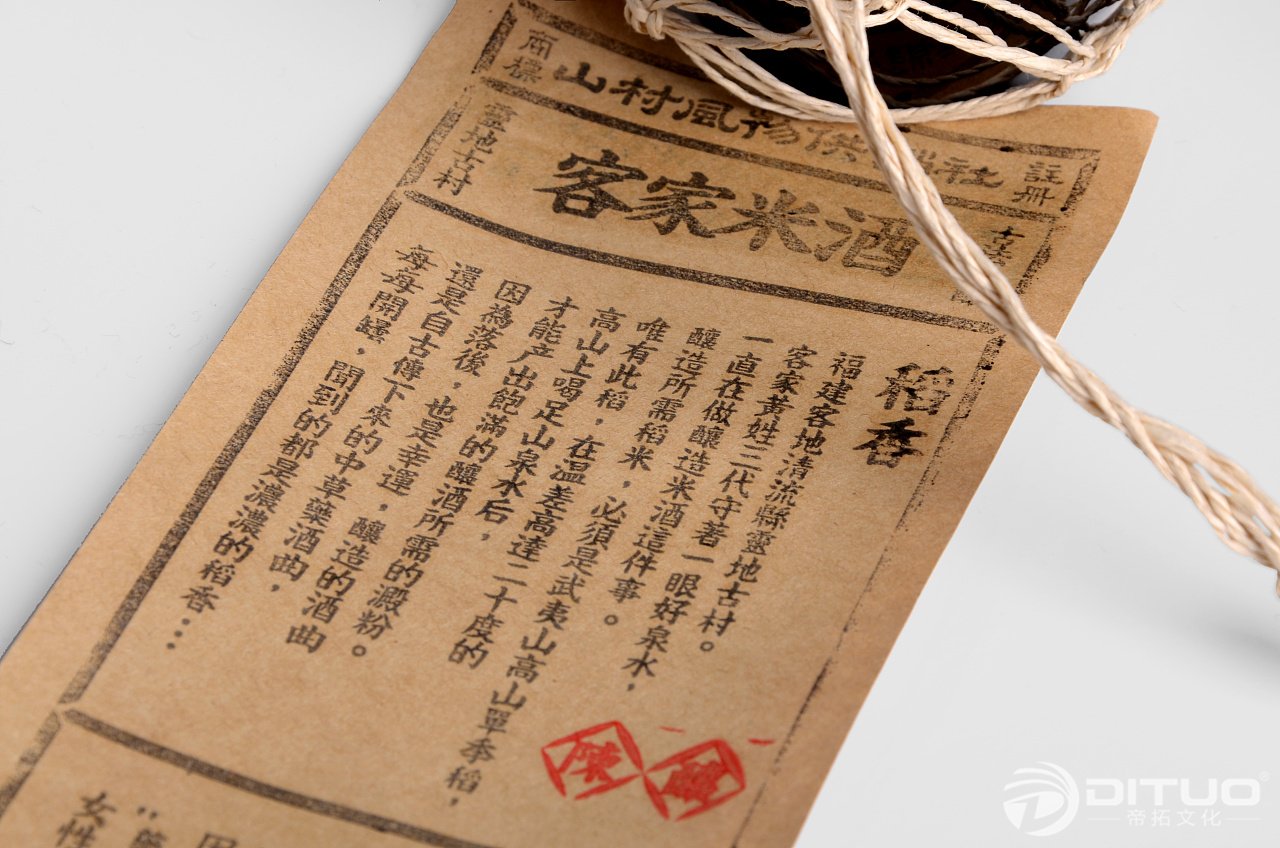 商標
山村風物供銷社
註冊
靈地古村
客家米酒
稻香
福建客地清流縣靈地古村。
客家黃姓三代守著一眼好泉水，
一直在做釀造米酒這件事。
釀造所需稻米，必須是武夷山高山單季稻，
唯有此稻，在温差高達二十度的
高山上喝足山泉水后，
才能产出飽滿的釀酒所需的澱粉。
因為落後，也是幸運，釀造的酒曲
還是自古傳下來的中草藥酒曲，
每每開罈，聞到的都是濃濃的稻香…
因
女性
DITUO®
帝拓文化